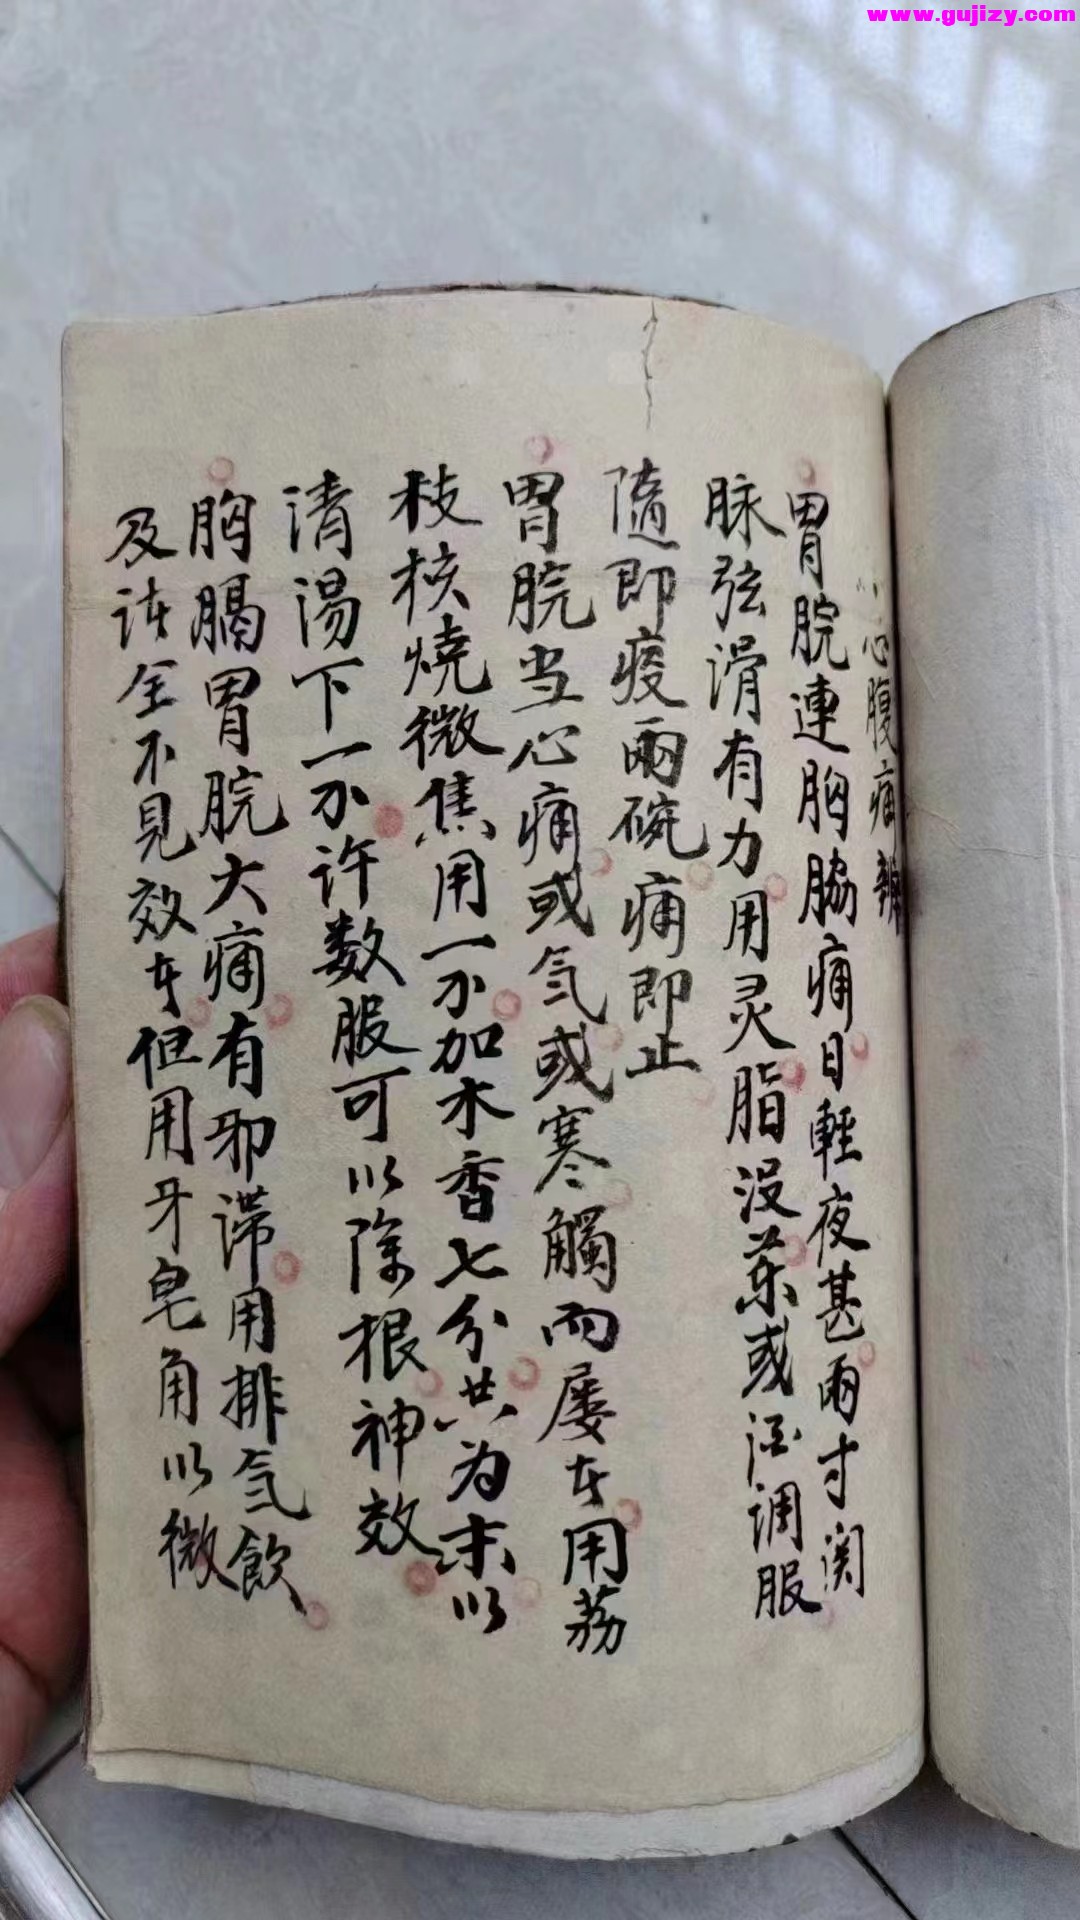 www.gujizy.com
心腹痛辨
胃脘連胸脇痛日輕夜甚兩寸関
脉弦滑有力用灵脂没薬或酒调服
随即疫兩碗痛即止
胃脘当心痛或氣或寒觸而屡卡用荔
枝核燒微焦用一不加木香七分共为末以
清湯下一不許数服可以除根神效
胸膈胃脘大痛有邪滞用排氣飲
及诸全不見效卡但用牙皂角以微